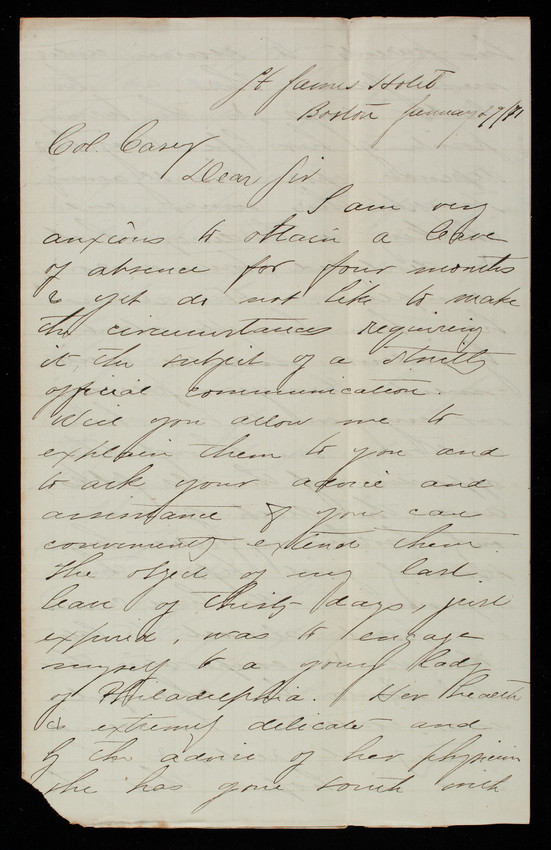 St James Hotel
Boston January 29/71
Col Casey
Dear Sir
I am very
anxious to obtain a leave
of absence for four months
& yet do not like to make
the circumstances requiring
it, the subject of a strictly
official communication.
Will you allow me to
explain them to you and
to ask your advice and
assistance if you can
conveniently extend them
The object of my last
leave of thirty days, just
expired, was to engage
myself to a young lady
of Philadelphia. Her health
is extremely delicate and
by the advice of her physician
she has gone south with